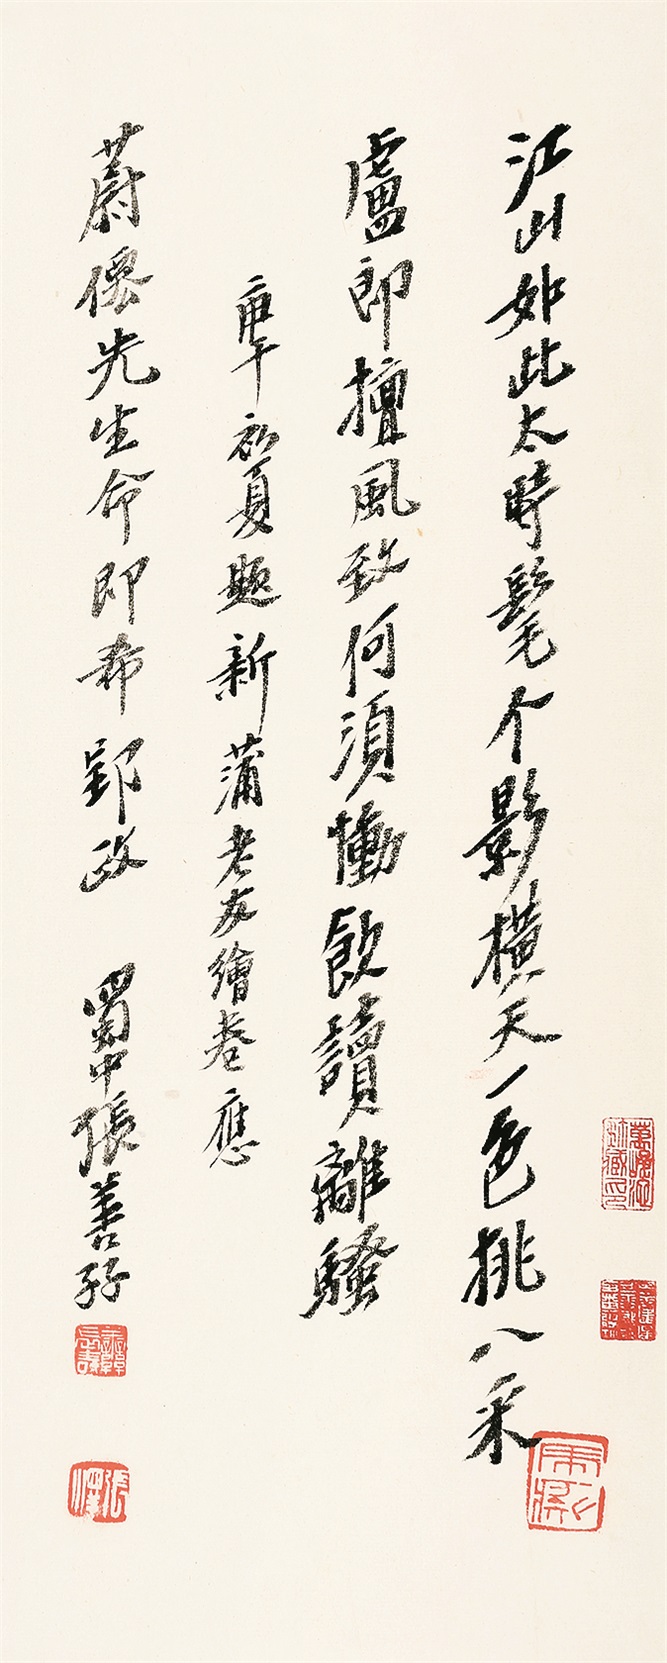 江山如此太時髦个影橫天一色挑八采
盧郎擅風致何須慟飲讀離騷
庚午初夏題新蒲老友繪卷應
蔚儂先生命即希郢政 蜀中張善孖